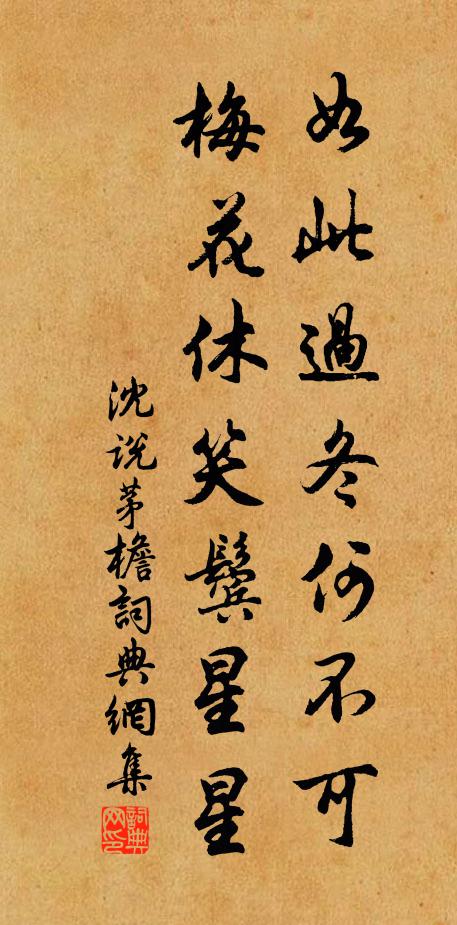 如此過冬何不可
梅花休笑鬢星星
沈説茅檐詞典網集
詞典网印